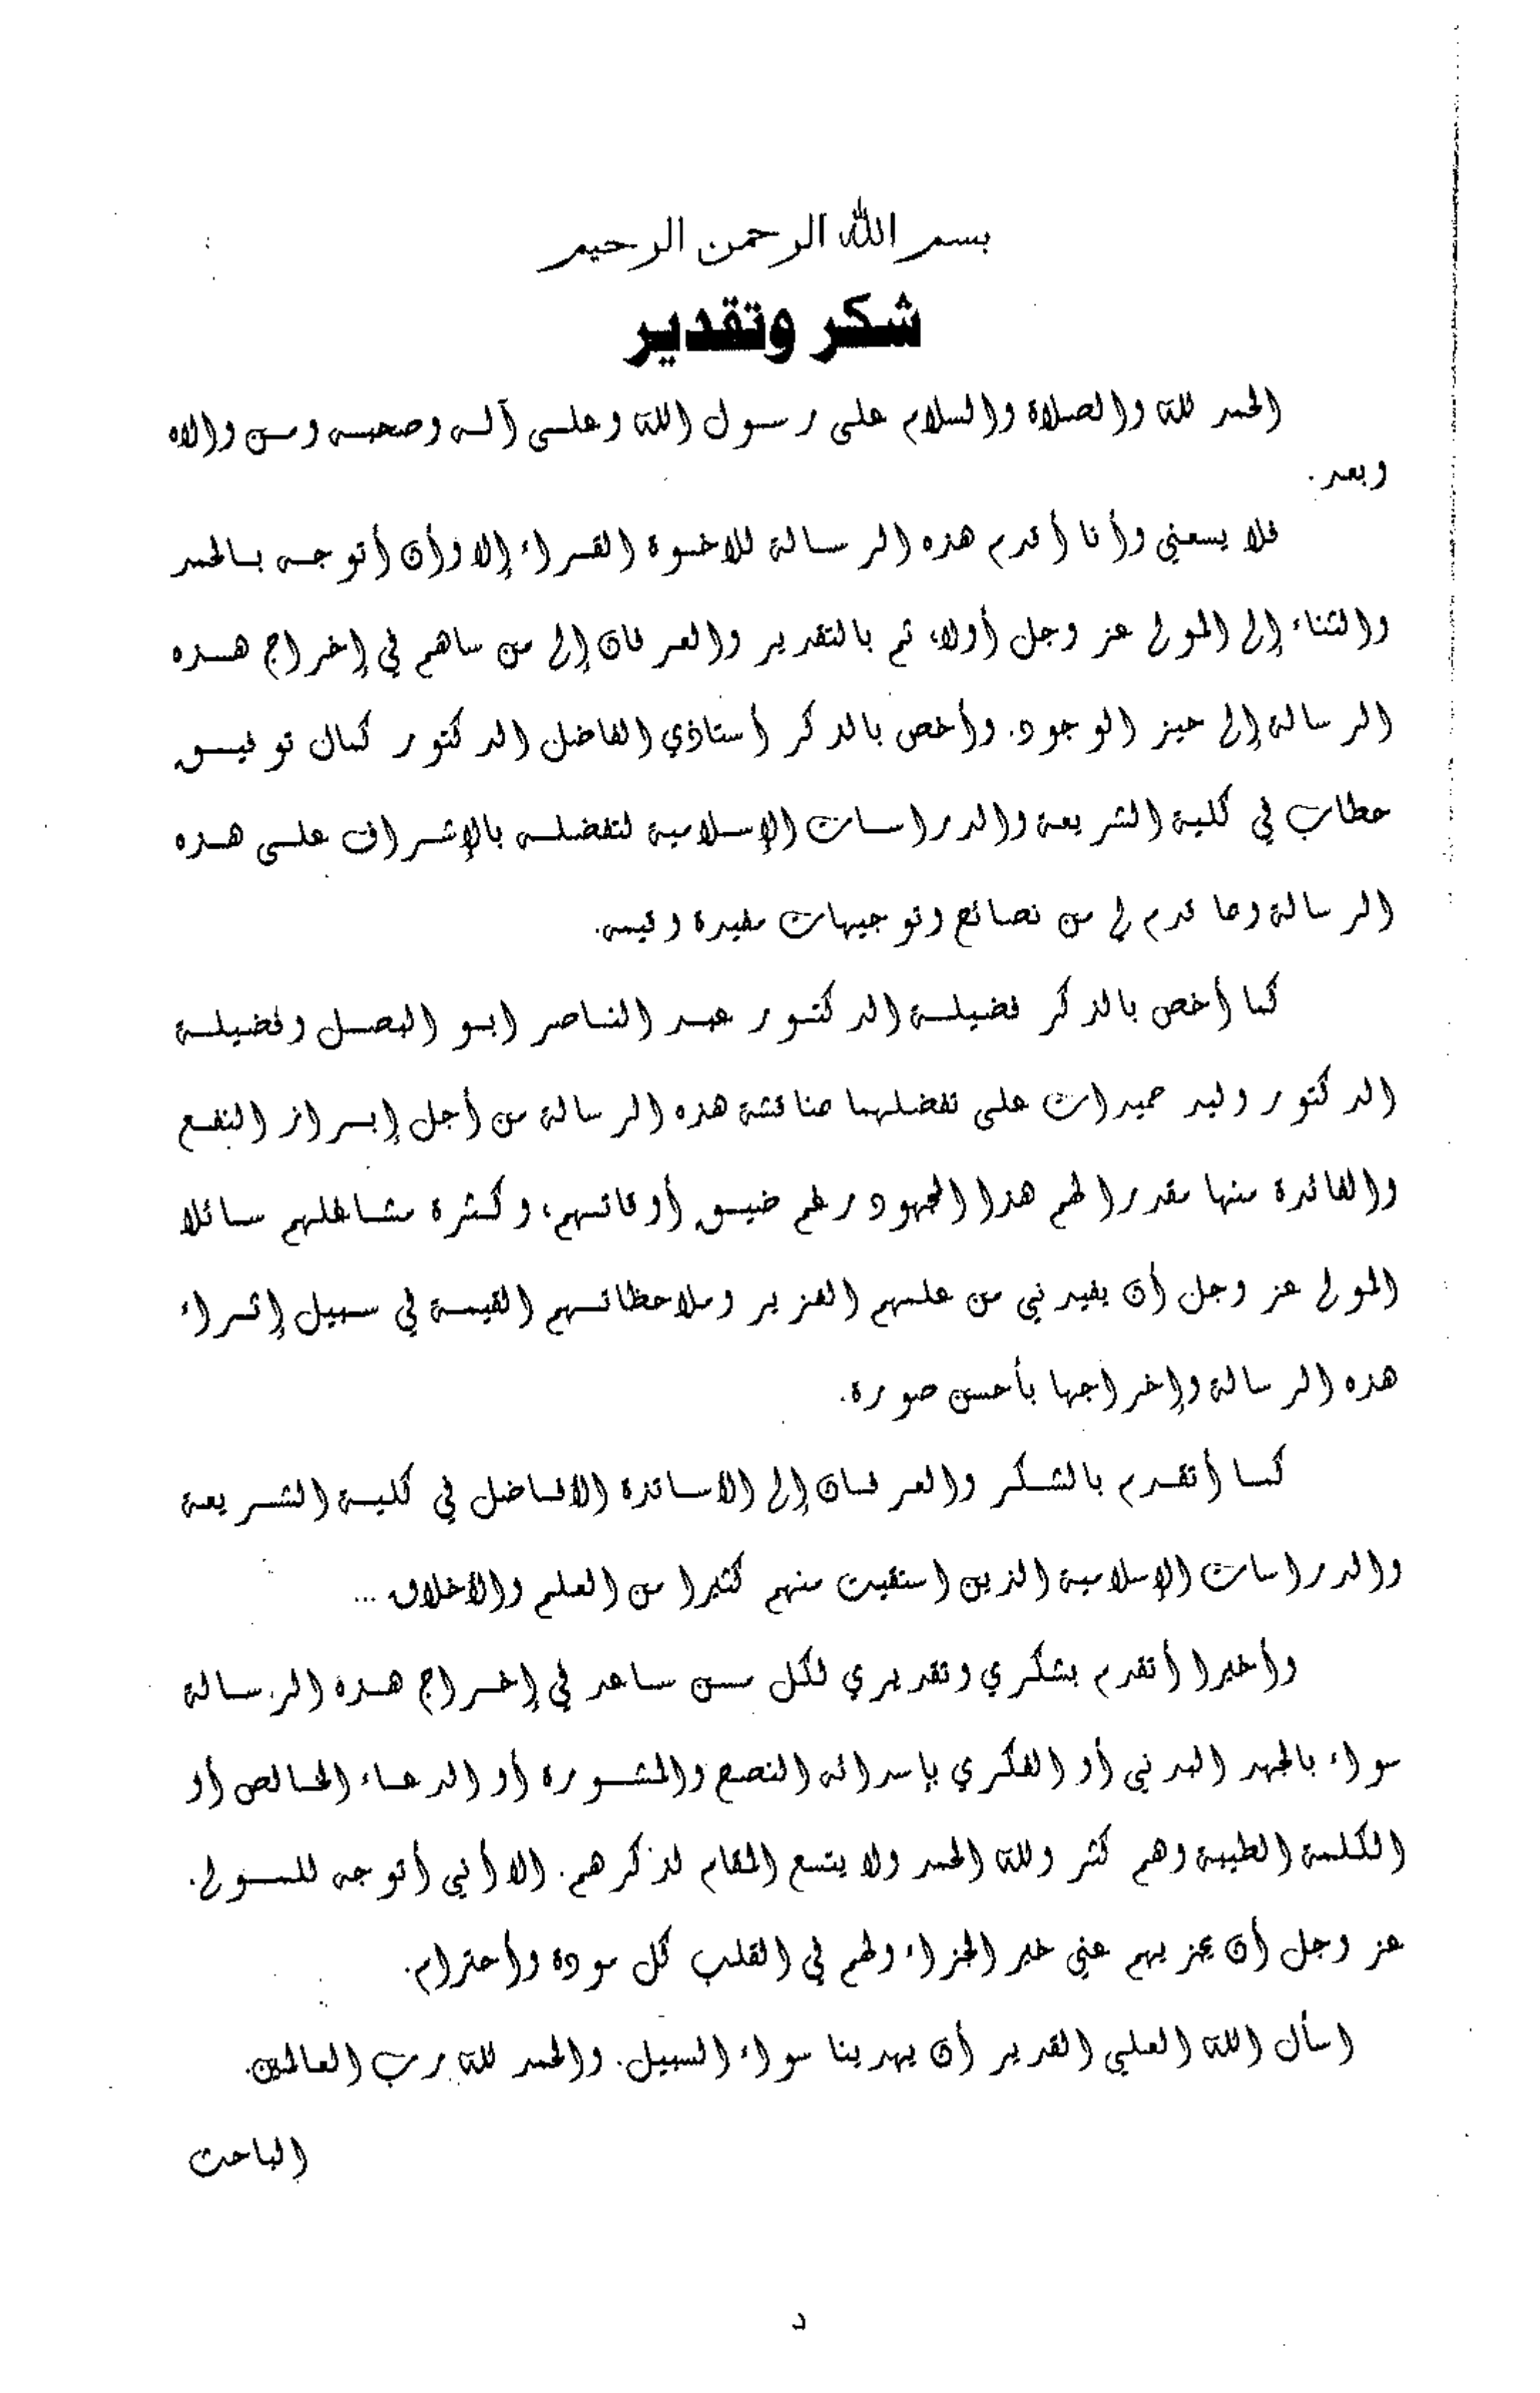 بسم الله الرحمن الرحيم
شكر وتقدير
الحمد لله والصلاة والسلام على رسول الله وعلى آله وصحبه ومن والاه
وبعد.
فلا يسعني وأنا أقدم هذه الرسالة للاخوة القراء إلا وأن أتوجه بالحمد
والثناء إلى المولى عز وجل أولا، ثم بالتقدير والعرفان إلى من ساهم في إخراج هذه
الرسالة إلى حيز الوجود. وأخص بالذكر أستاذي الفاضل الدكتور كمال توفيق
حطاب في كلية الشريعة والدراسات الإسلامية لتفضله بالإشراف على هذه
الرسالة وما قدم لي من نصائح وتوجيهات مفيدة وقيمه.
كما أخص بالذكر فضيلة الدكتور عبد الناصر ابو البصل وفضيلة
الدكتور وليد حميدات على تفضلهما مناقشة هذه الرسالة من أجل إبراز النفع
والفائدة منها مقدرا لهم هذا المجهود رغم ضيق أوقاتهم، وكثرة مشاغلهم سائلا
المولى عز وجل أن يفيدني من علمهم الغزير وملاحظاتهم القيمة في سبيل إثراء
هذه الرسالة وإخراجها بأحسن صورة.
كما أتقدم بالشكر والعرفان إلى الأساتذة الأفاضل في كلية الشريعة
والدراسات الإسلامية الذين استقيت منهم كثيرا من العلم والأخلاق ...
وأخيرا أتقدم بشكري وتقديري لكل من ساعد في إخراج هذه الرسالة
سواء بالجهد البدني أو الفكري بإسدائه النصح والمشورة أو الدعاء الخالص أو
الكلمة الطيبة وهم كثر ولله الحمد ولا يتسع المقام لذكرهم. الا أني أتوجه للمولى
عز وجل أن يجزيهم عني خير الجزاء ولهم في القلب كل مودة وأحترام.
اسأل الله العلي القدير أن يهدينا سواء السبيل. والحمد لله رب العالمين.
الباحث
د